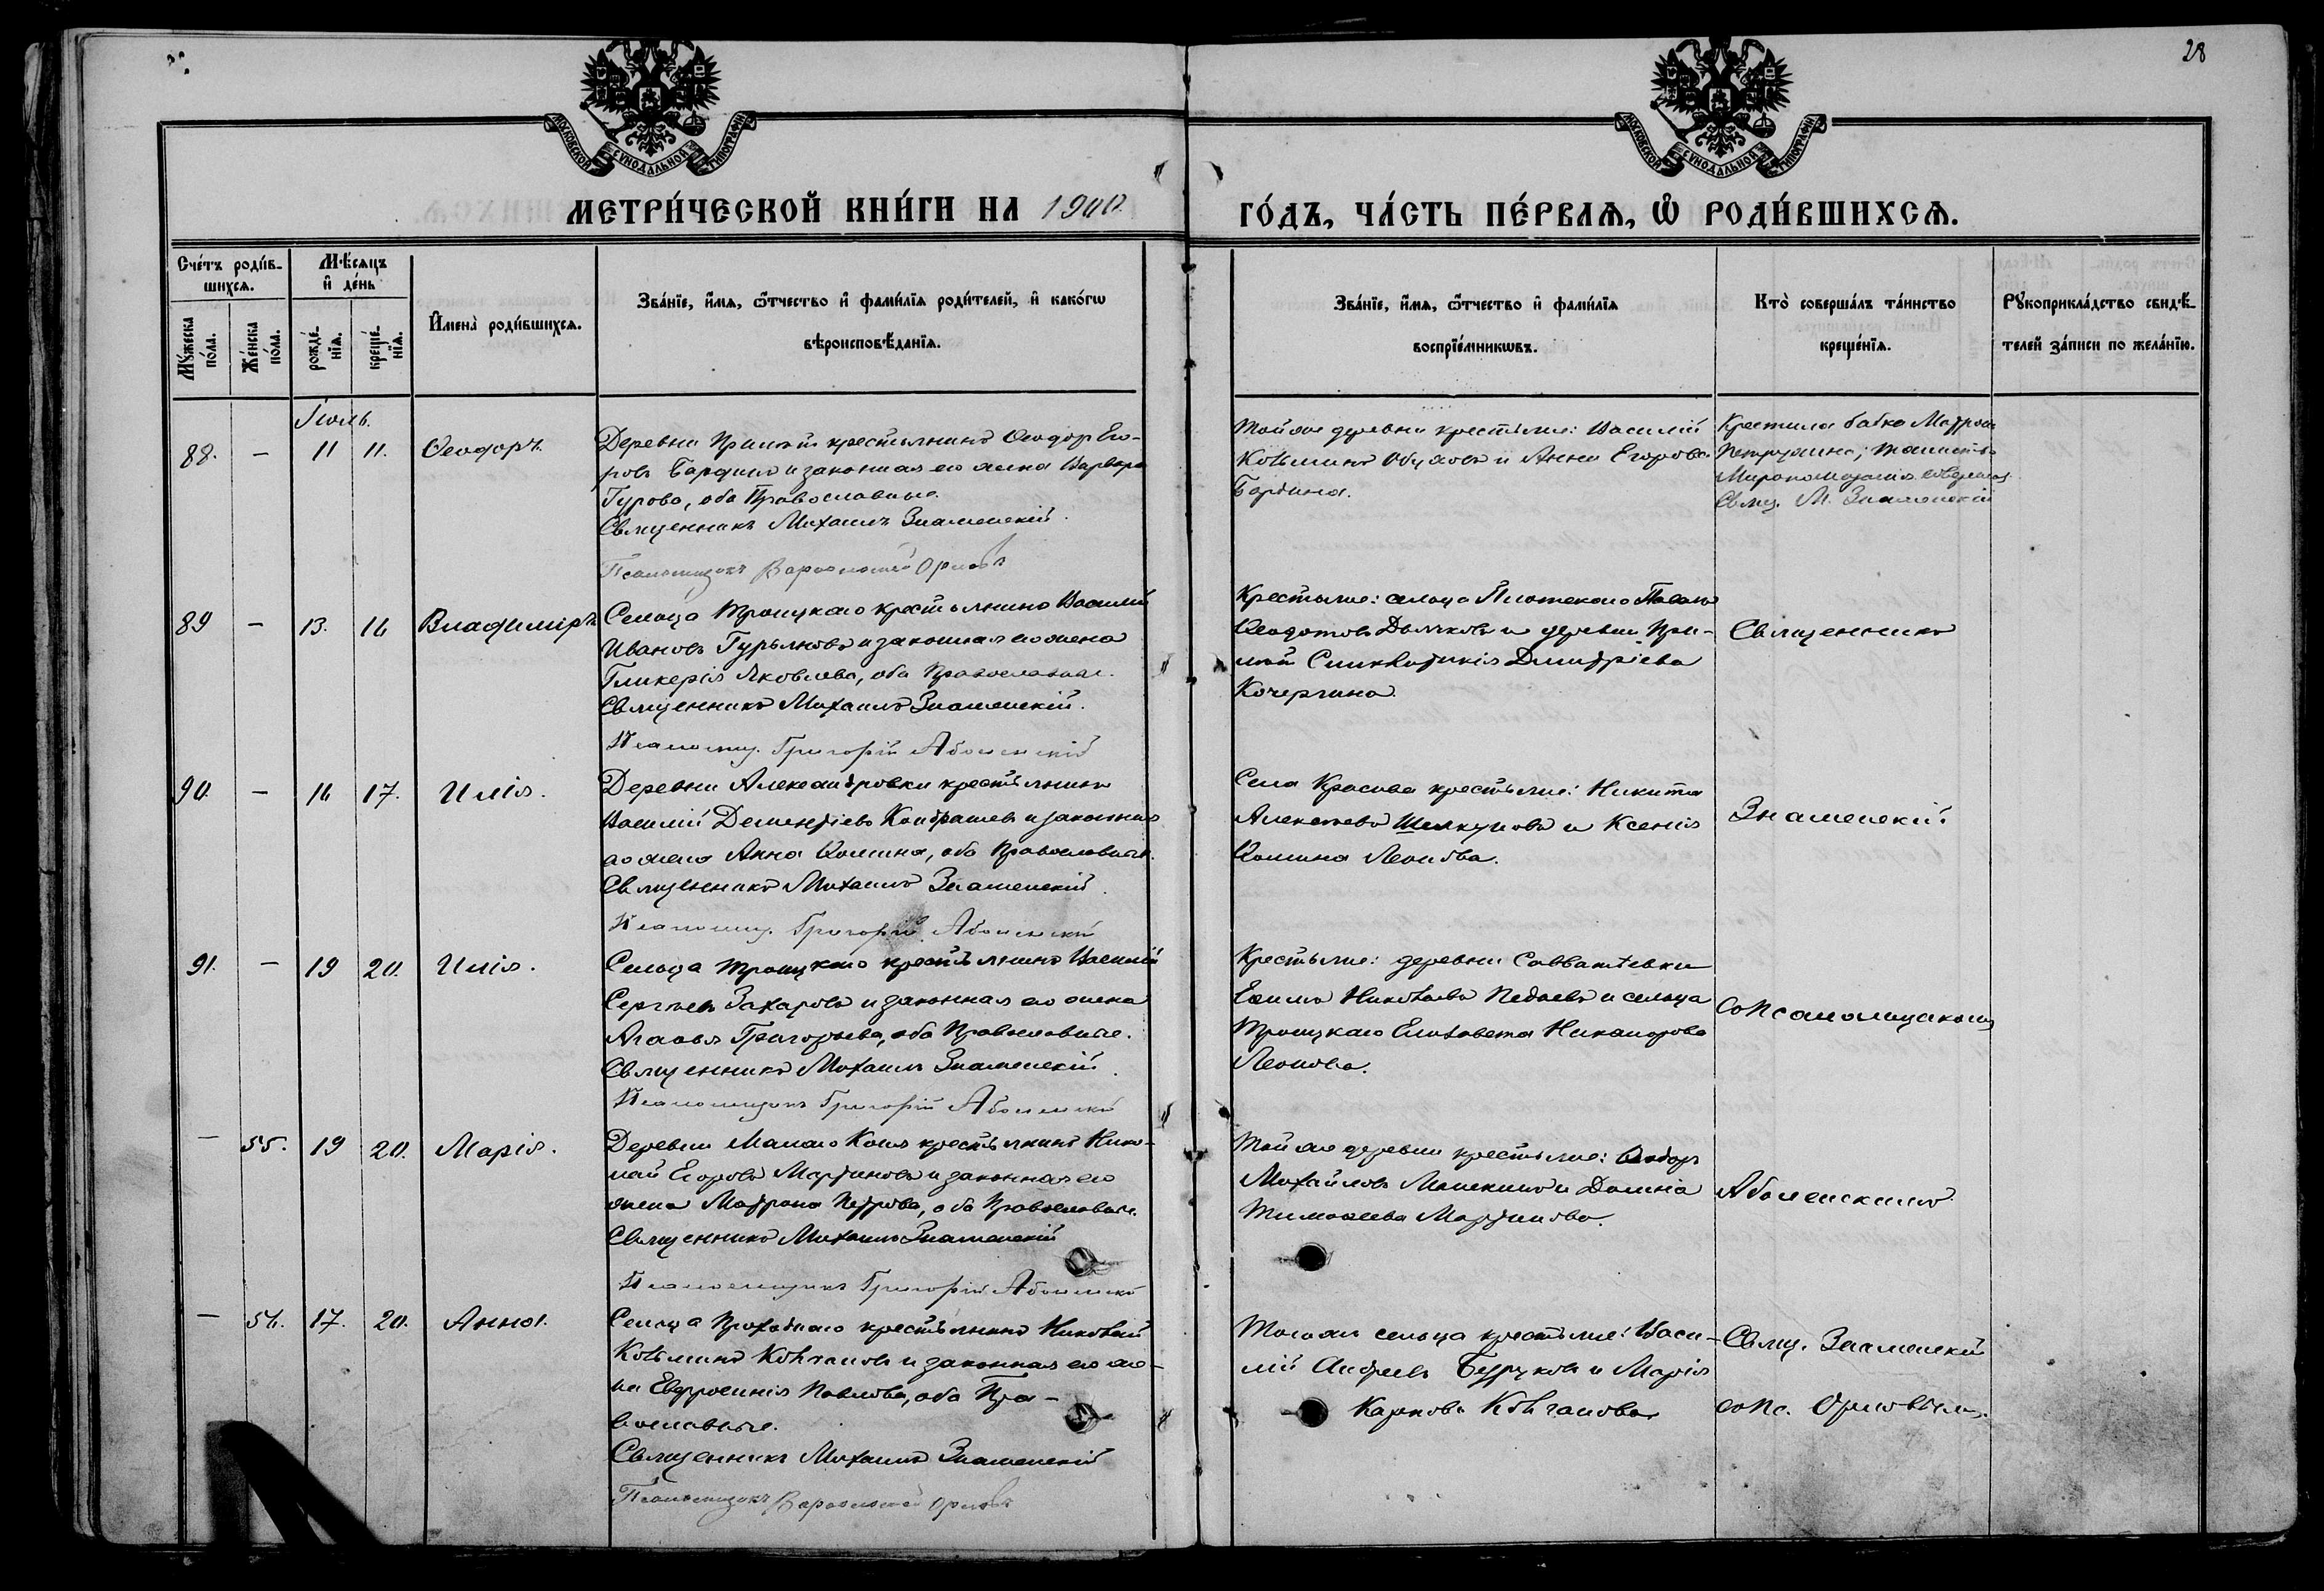 28
МОСКОВСКОЙ СѴНОДАЛЬНОЙ ТИПОГРАФІИ
МОСКОВСКОЙ СѴНОДАЛЬНОЙ ТИПОГРАФІИ
МЕТРИ́ЧЕСКОЙ КНИ́ГИ НА 1900
ГО́ДЪ, ЧА́СТЬ ПЕ́РВАѦ, Ѽ РОДИ́ВШИХСѦ.
Сче́тъ роди́в-
шихся.
Му́жеска
по́ла.
Же́нска
по́ла.
Мѣ́сяцъ
и҆ де́нь
рожде́-
нїя.
креще́-
нїя.
И҆мена̀ роди́вшихся.
Зва́нїе, и҆́мя, ѻ҆́тчество и҆ фами́лїя роди́телей, и҆ како́гѡ
вѣроисповѣ́данїя.
Зва́нїе, и҆́мя, ѻ҆́тчество и҆ фами́лїя
воспрїе́мникѡвъ.
Кто̀ соверша́лъ та́инство
креще́нїя.
Рꙋкоприкла́дство свидѣ́-
телей за́писи по жела́нїю.
Іюль.
88. – 11 11. Ѳеодоръ.
Деревни крестьянинъ Ѳеодор Его-
ровъ Бардинъ и законная его жена Варвара
Гурова, оба Православные.
Священникъ Михаилъ Знаменскій.
Псаломщикъ Варѳоломей Орловъ
Той же деревни крестьяне: Василій
Козьминъ и Анна Егорова
Бардина.
Крестила бабка Матрона
таинство
Миропомазанія совершал
Свящ. М. Знаменскій
89 – 13. 16 Владиміръ
Сельца Троицкаго крестьянинъ Василій
Ивановъ Гурьяновъ и законная его жена
Гликерія Яковлева, оба Православные.
Священникъ Михаилъ Знаменскій.
Псаломщ. Григорій Аболенскій
Крестьяне: сельца Павелъ
Ѳедотовъ и деревни
Синклитикія Димитріева
Кочергина.
Священникъ
90. – 16 17. Илія.
Деревни Александровки крестьянинъ
Василій Дементіевъ Кондрашевъ и законная
его жена Анна Ѳомина, оба Православные.
Священникъ Михаилъ Знаменскій.
Псаломщ. Григорій Аболенскій
Села Красова крестьяне: Никита
Алексѣевъ Шелкуновъ и Ксенія
Ѳомина Леонова.
Знаменскій
91. – 19 20. Илія.
Сельца Троицкаго крестьянинъ Василій
Сергѣевъ Захаровъ и законная его жена
Агаѳья Григорьева, оба Православные.
Священникъ Михаилъ Знаменскій.
Псаломщикъ Григорій Аболенскій
Крестьяне: деревни Савватѣевки
Николаевъ и сельца
Троицкаго Елизавета Никанорова
Леонова.
съ Псаломщикомъ
– 55. 19 20. Марія.
Деревни Малаго крестьянинъ Нико-
лай Егоровъ Мартиновъ и законная его
жена Матрона Петрова, оба Православные.
Священникъ Михаилъ Знаменскій
Псаломщикъ Григорій Аболенскій
Той же деревни крестьяне: Ѳедоръ
Михайловъ и Домна
Тимоѳеева Мартинова.
Аболенскимъ
– 56. 17. 20. Анна.
Сельца крестьянинъ Николай
Козьминъ Колгановъ и законная его же-
на Евфросинія Павлова, оба Пра-
вославные.
Священникъ Михаилъ Знаменскій
Псаломщикъ Варѳоломей Орловъ
Того же сельца крестьяне: Васи-
лій Андреевъ и Марія
Карпова Колганова.
Свящ. Знаменскій
съ Пс. Орловымъ.